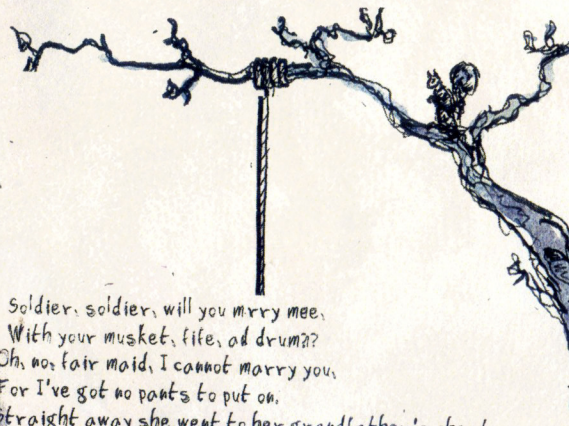 Soldier, soldier, will you mrry mee,
With your musket, fife, ad drum??
Oh, no, fair maid, I cannot marry you,
For I've got no pants to put on.
Straight away she went to her